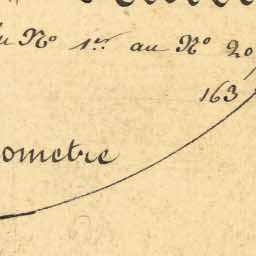 u N° 1er au N° 20
163
ometre